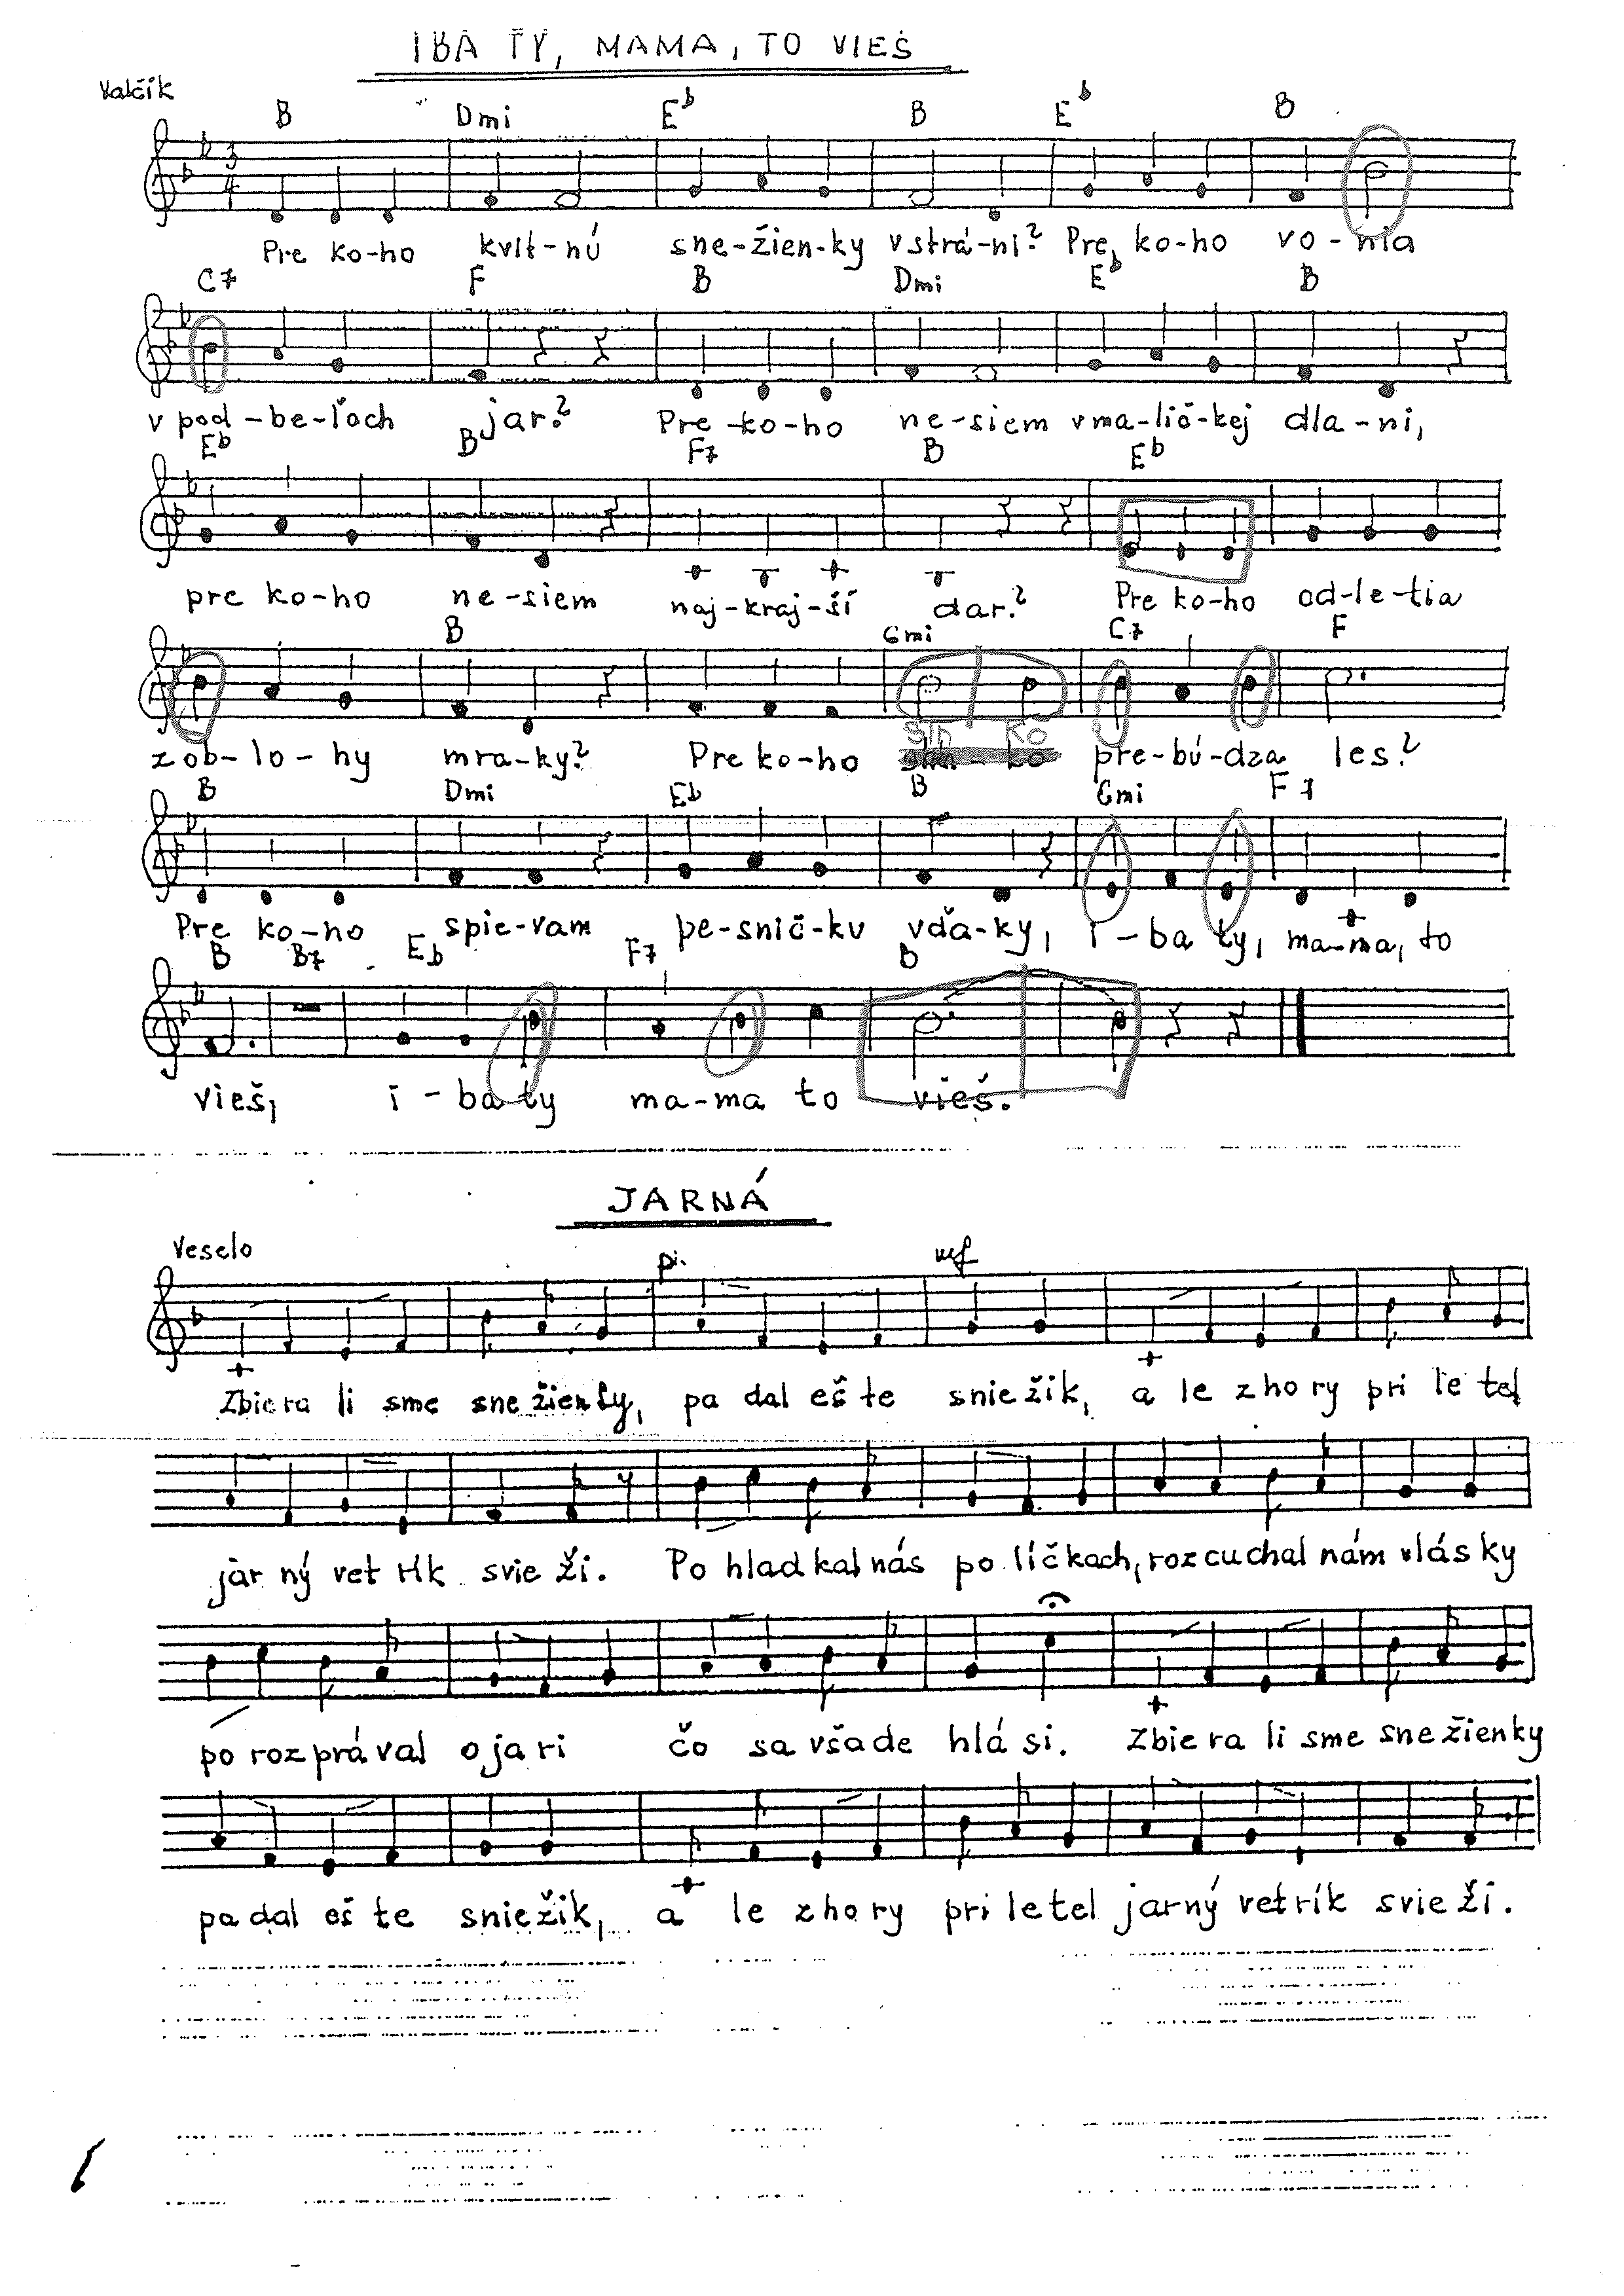 IBA TY, MAMA, TO VIEŠ
Valčík
B Dmi E♭ B E♭ B
3
4
Pre ko-ho kvit-nú sne-žien-ky v strá-ni? Pre ko-ho vo-nia
C7 F B Dmi E♭ B
v pod-be-ľoch jar? Pre-ko-ho ne-siem v ma-lič-kej dla-ni,
E♭ B F7 B E♭
pre ko-ho ne-siem naj-kraj-ší dar? Pre ko-ho od-le-tia
B Gmi C7 F
Sln Ko
z ob-lo-hy mra-ky? Pre ko-ho pre-bú-dza les?
B Dmi Eb B Gmi F7
Pre ko-ho spie-vam pe-snič-ku vďa-ky, i-ba ty, ma-ma, to
B B7 Eb F7 B
vieš, i-ba ty ma-ma to vieš.
JARNÁ
Veselo
p. mf
Zbiera li sme sne žienky, pa dal eš te sniežik, a le z hory pri le tel
jar ný vet rík svie ži. Po hladkal nás po líčkach, rozcuchal nám vlásky
po rozprával o jari čo sa všade hlá si. Zbiera li sme snežienky
padal eš te sniežik, a le z hory priletel jarný vetrík svieži.